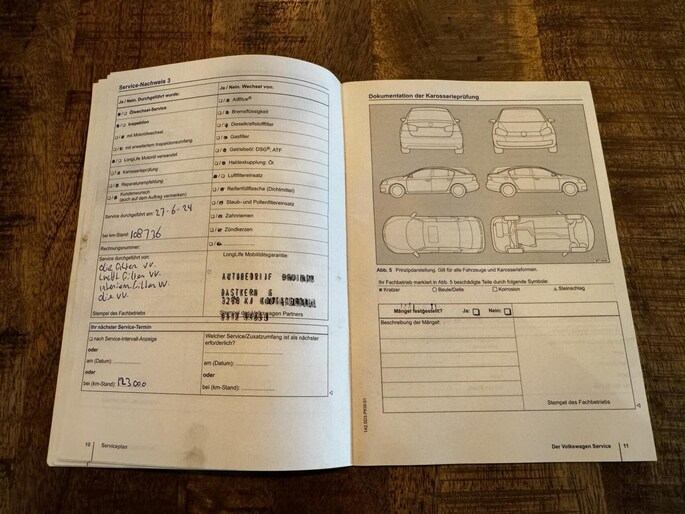 Service-Nachweis 3
Ja / Nein. Durchgeführt wurde:
Ölwechsel-Service
Inspektion
mit Motorölwechsel
mit erweitertem Inspektionsumfang
LongLife Motoröl verwendet
Karosserieprüfung
Reparaturempfehlung
Kundenwunsch
(auch auf dem Auftrag vermerken)
Service durchgeführt am: 27-6-24
bei km-Stand: 108736
Rechnungsnummer:
Service durchgeführt von:
olie filter vv.
lucht filter vv.
interieur filter vv.
olie vv.
Stempel des Fachbetriebs
Ja / Nein. Wechsel von:
AdBlue®
Bremsflüssigkeit
Dieselkraftstofffilter
Gasfilter
Getriebeöl: DSG®, ATF
Haldexkupplung: Öl
Luftfiltereinsatz
Reifenfüllflasche (Dichtmittel)
Staub- und Pollenfiltereinsatz
Zahnriemen
Zündkerzen
LongLife Mobilitätsgarantie
AUTOBEDRIJF
Stempel des Volkswagen Partners
Ihr nächster Service-Termin
nach Service-Intervall-Anzeige
oder
am (Datum):
oder
bei (km-Stand): 123.000
Welcher Service/Zusatzumfang ist als nächster
erforderlich?
am (Datum):
oder
bei (km-Stand):
10 Serviceplan
Dokumentation der Karosserieprüfung
Abb. 5 Prinzipdarstellung. Gilt für alle Fahrzeuge und Karosserieformen.
Ihr Fachbetrieb markiert in Abb. 5 beschädigte Teile durch folgende Symbole:
Kratzer Beule/Delle Korrosion Steinschlag
Mängel festgestellt? Ja: Nein:
Beschreibung der Mängel:
Stempel des Fachbetriebs
Der Volkswagen Service 11